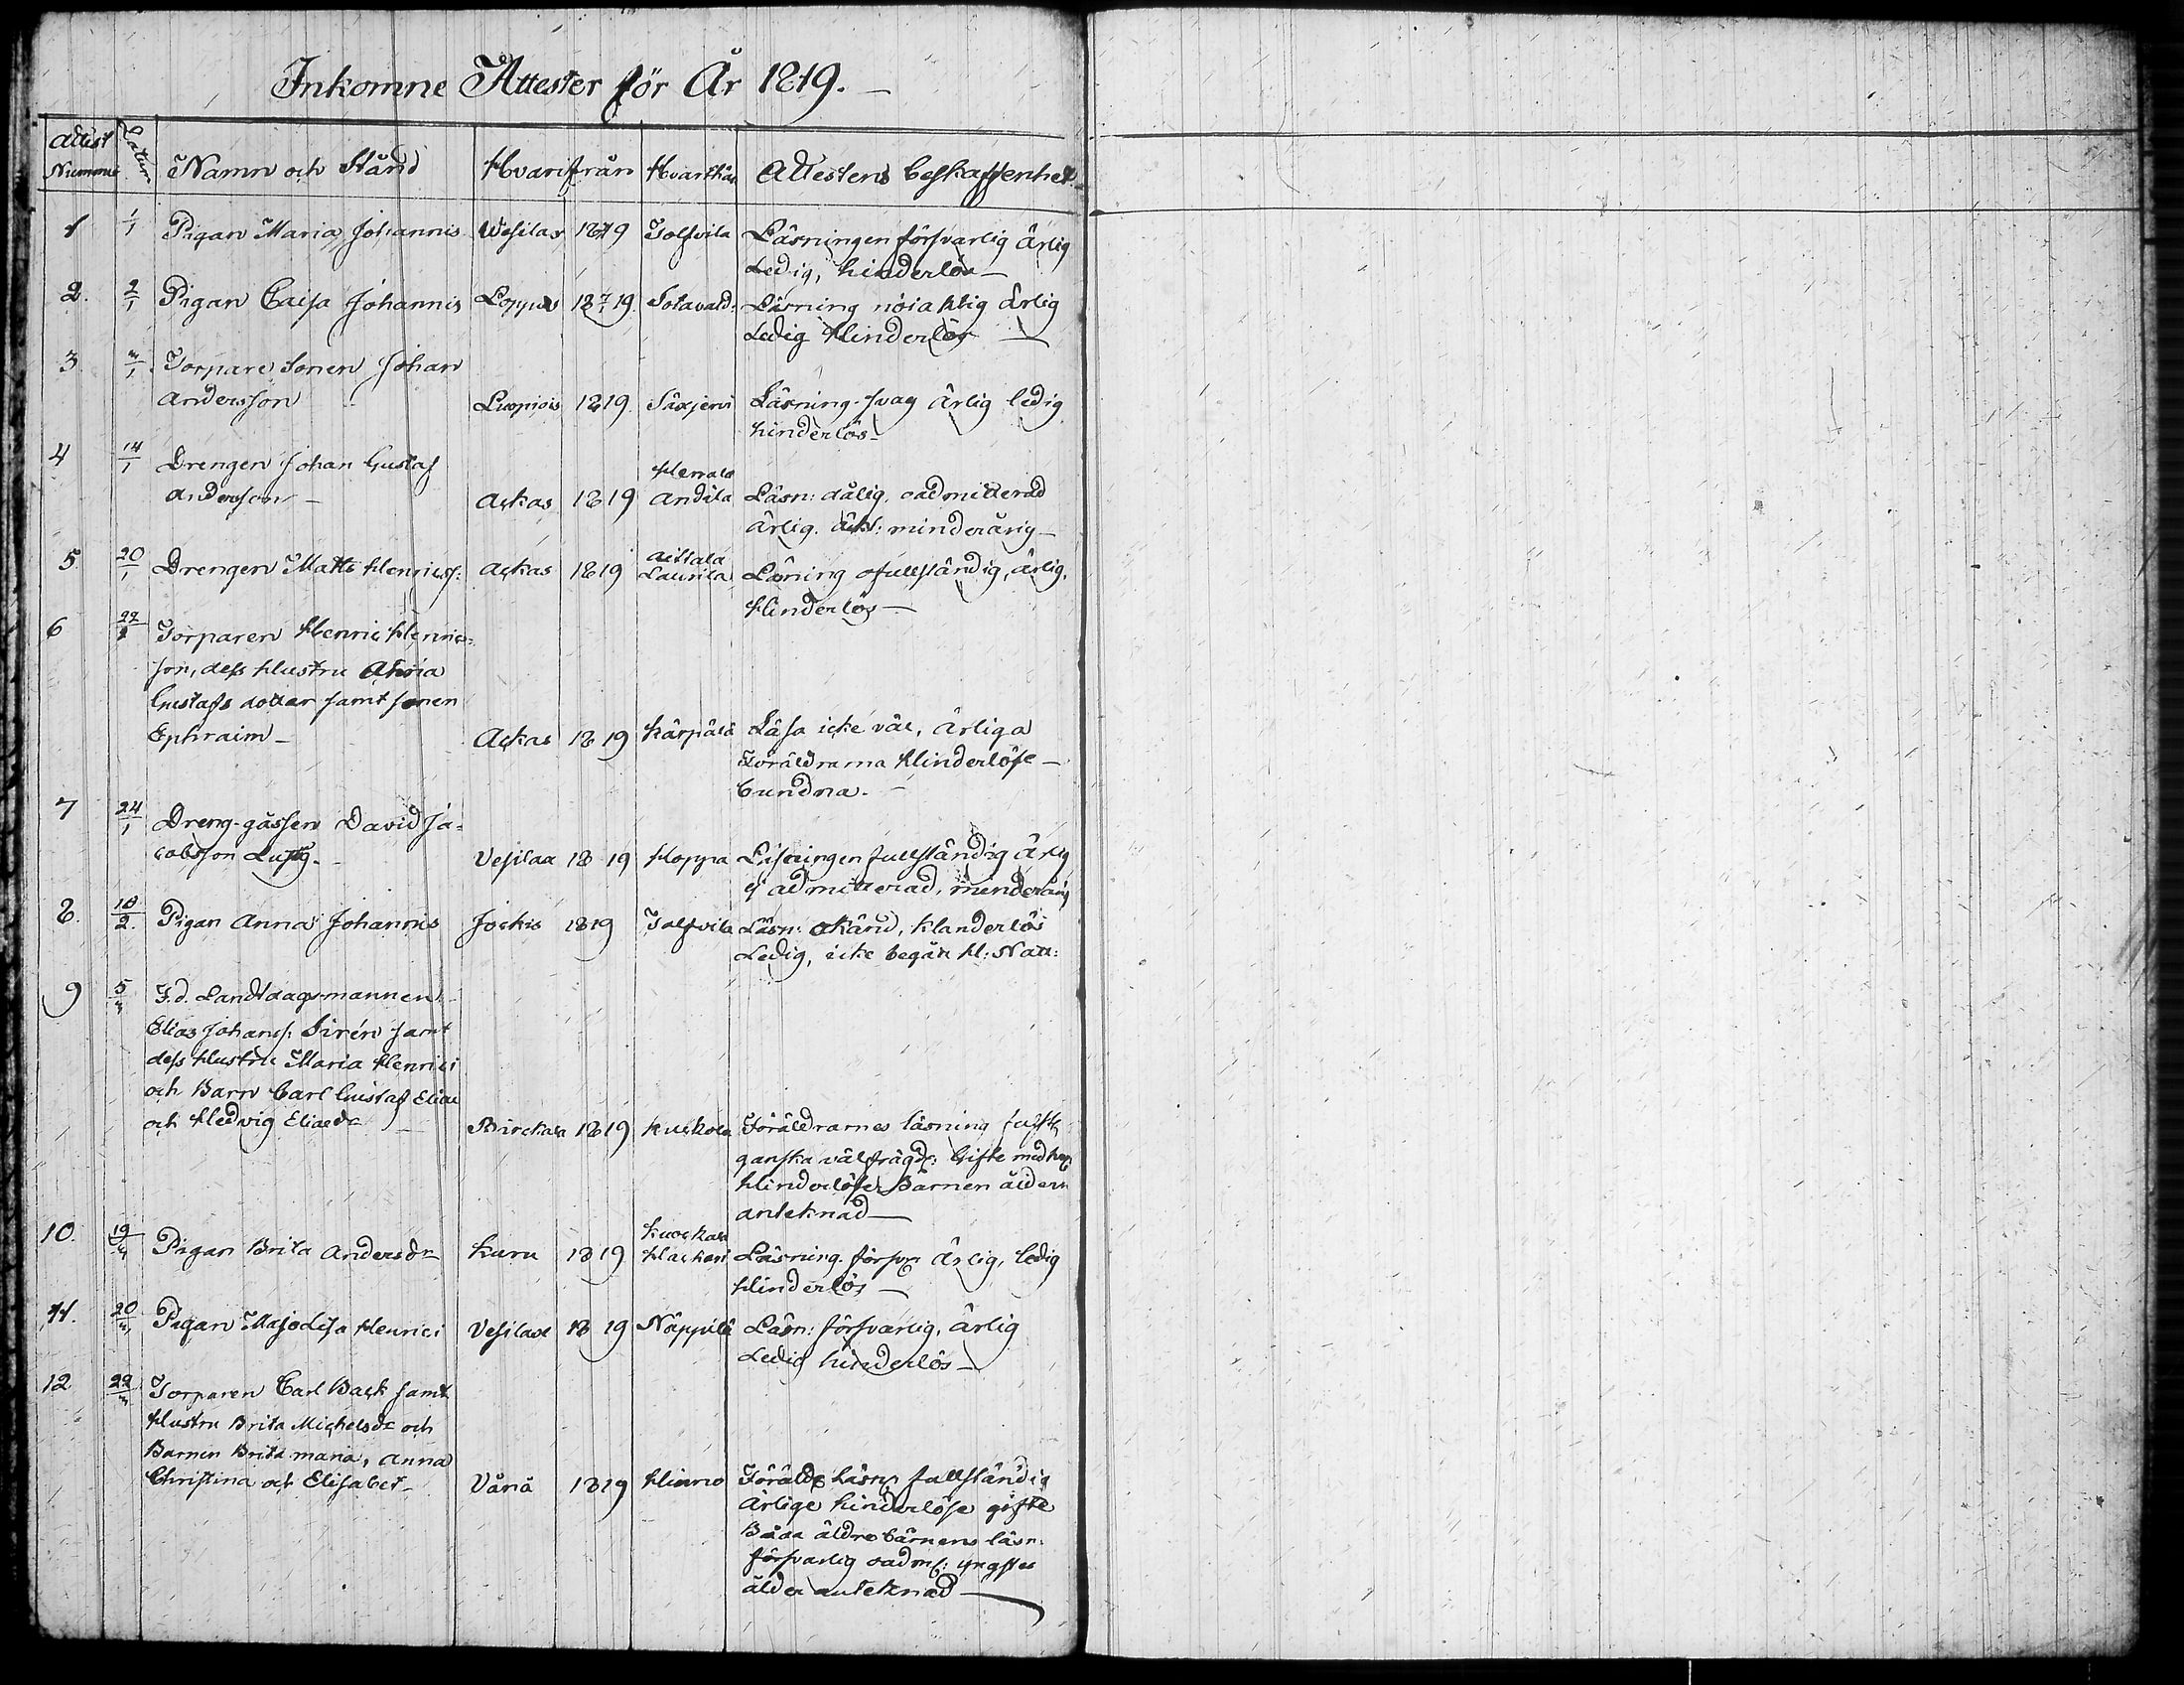 Inkomne Attester för År 1819.
Attest Nummer Datum Namn och Stånd Hvarifrån Hvarthän Attestens beskaffenhet
1 1/1 Pigan Maria Johannis Wesilax 1819 Tolfvila Läsningen försvarlig ärlig
Ledig, hinderlös
2. 2/1 Pigan Caisa Johannis Loppis 1819. Sotavald: Läsning nöiaktig ärlig
Ledig Hinderlös
3 3/1 Torpare Sonen Johan
Andersson Luopiois 1819. Säxjervi Läsning svag ärlig ledig
hinderlös
4 14/1 Drengen Johan Gustaf
Andersson Ackas 1819 Andila Läsn: dålig, oadmitterad
ärlig. minderårig
5 20/1 Drengen Matts Henricss: Ackas 1819 Aittala Laurila Läsning ofullständig, ärlig,
Hinderlös
6 Torparen Henric Henrics=
son, dess Hustru
Gustafs dotter samt sonen
Ephraim Ackas 1819 Kärpälä Läsa icke väl, ärliga
Föräldrarna Hinderlöse
bundna.
7 24/1 Dreng-gåssen David Ja=
cobsson Lustig. Vesilax 1819 Hoppa Läsningen fullständig ärlig
ej admitterad, minderårig
8. 10/2. Pigan Anna Johannis Jockis 1819 Tolfvila Läsn: okänd, klanderlös
Ledig, icke begått H: Natt:
9 5/3 F.d. Landtdagsmannen
Elias Johanss: Sirén samt
dess Hustru Maria Henrici
och Barn Carl Gustaf Eliae
och Hedvig Eliaedr Birckala 1819 Kuckola Föräldrarnes läsning
ganska välfrägd: Gifte med hvar
Hinderlöse, Barnen åldern
anteknad
10. 19/3 Pigan Brita Andersdr Kuru 1819 Läsning försvar ärlig, ledig
Hinderlös
11. 20/3 Pigan Majo Lisa Henrici Vesilax 1819 Näppilä Läsn: försvarlig, ärlig
Ledig hinderlös
12 22/3 Torparen Carl Back samt
Hustru Brita Michelsdr och
Barnen Brita Maria, Anna
Christina och Elisabet Vånå 1819 Föräldr läsn: fullständig
ärlige hinderlöse gifte
Båda äldre barnens läsn:
försvarlig oadm: yngstes
ålder anteknad